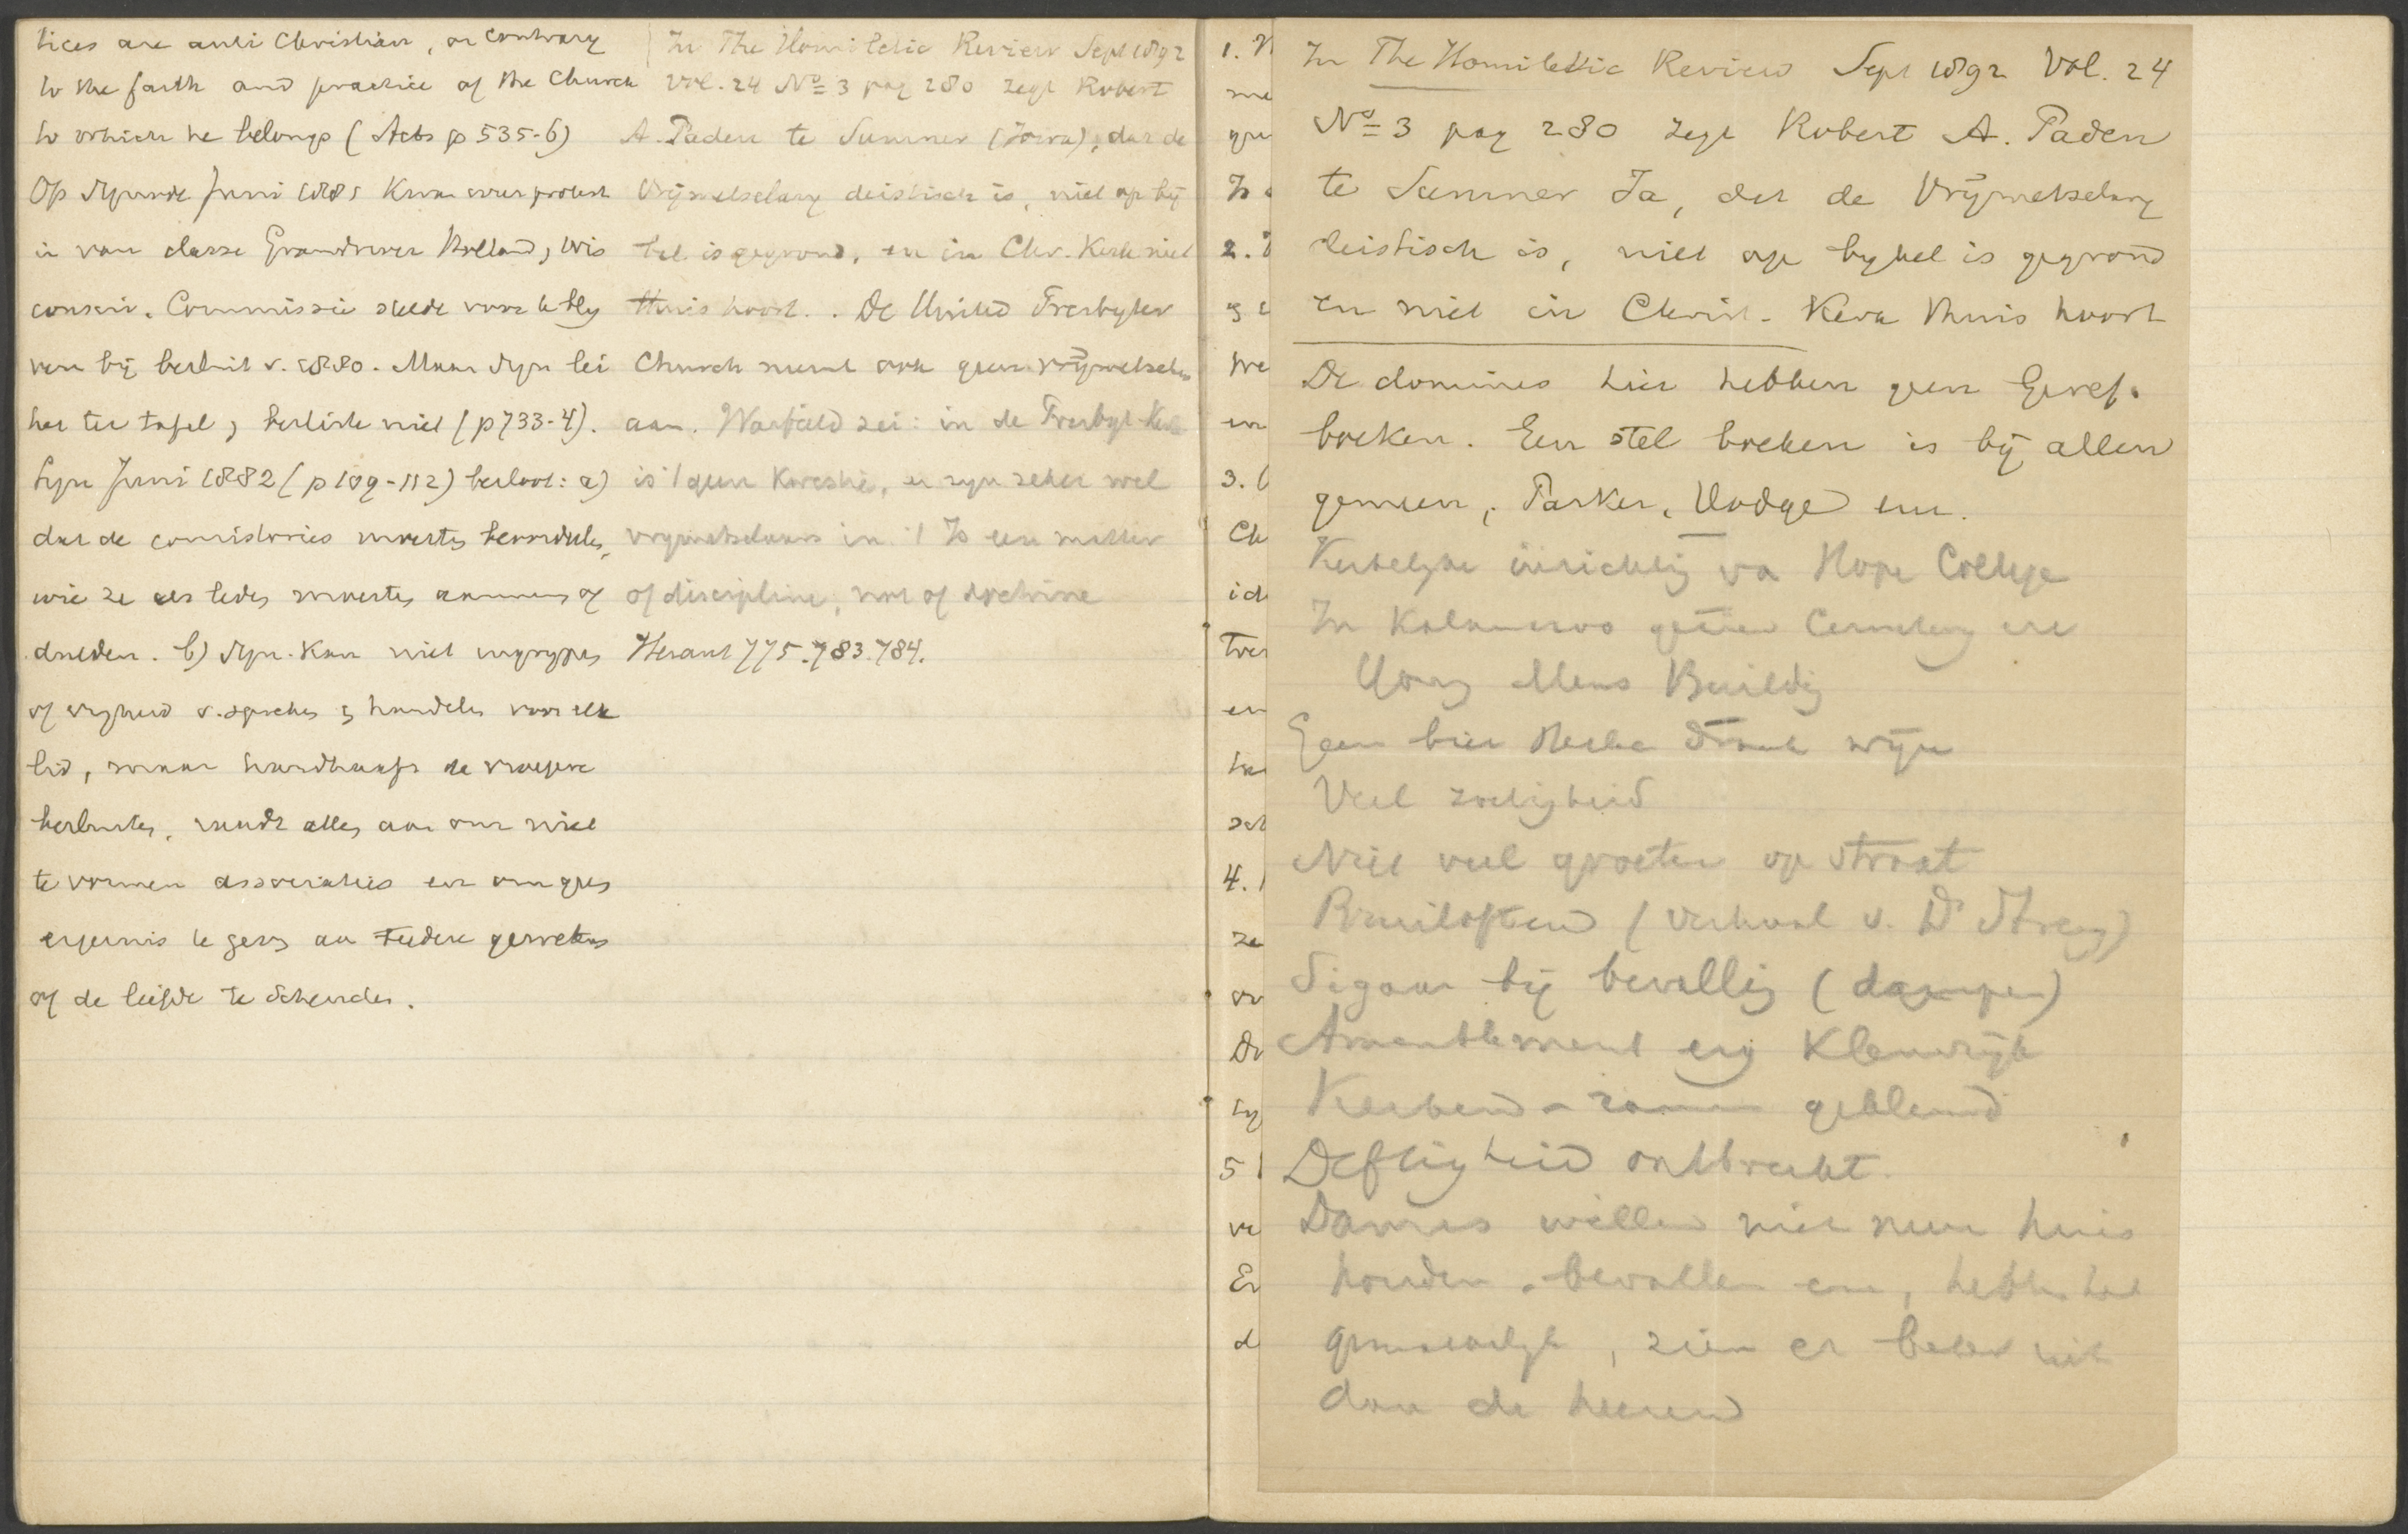 tices are anti Christian, or contrary
to the faith and practice of the Church
to which he belongs (Acts p 535-6)
Op Synode Juni 1885 kwam weer protest
in van classe Grandriver Holland, Wis
consin. Commissie stelde voor te bly
ven bij besluit v. 1880. Maar Syn lei
het ter tafel, besliste niet (p 733-4).
Syn Juni 1882 (p 109-112) besloot: a)
dat de consistories moesten beoordelen,
wie ze als leden moesten aannemen of
dulden. b) Syn. kan niet ingrypen
of vryheid v. spreken en handelen voor elk
lid, maar handhaaft de vroegere
besluiten, raadt allen aan om niet
te vormen associaties en om geen
ergernis te geven aan teedere gewetens
of de liefde te schenden.
In The Homiletic Review Sept 1892
Vol. 24 No 3 pag 280 zegt Robert
A. Paden te Sumner (Iowa), dat de
Vrijmetselarij deistisch is, niet op bij
bel is gegrond, en in Chr. Kerk niet
thuis hoort. De United Presbyter
Church neemt ook geen vrijmetselers
aan. Warfield zei: in de Presbyt. Kerk
is 't geen kwestie, er zyn zeker wel
vrymetselaars in. 't Is een matter
of discipline, not of doctrine
Heraut 775. 783. 784.
1.
me
Is
2.
en
We
en
3.
Ch
id
Tre
en
4.
ze
ov
De
5
ve
En
d
In The Homiletic Review Sept 1892 Vol. 24
No 3 pag 280 zegt Robert A. Paden
te Sumner Ia, dat de Vrijmetselary
deistisch is, niet op bybel is gegrond
en niet in Christ. Kerk thuis hoort
De domines hier hebben geen Geref.
boeken. Een stel boeken is bij allen
gemeen, Parker, Hodge enz.
Kerkelyke inrichting van Hope College
In Kalamazoo Cemetery en
Young Mens Building
Geen bier sterke drank wijn
Veel zoetigheid
Niet veel groeten op straat
Bruiloften (verhaal v. Ds Streng)
Sigaar bij bevalling (dampen)
Ameublement erg kleurrijk
Kerken - ramen geblend
Deftigheid ontbreekt.
Dames willen niet meer huis
houden, bevallen enz, hebben het
gemakkelyk, zien er beter uit
dan de heeren